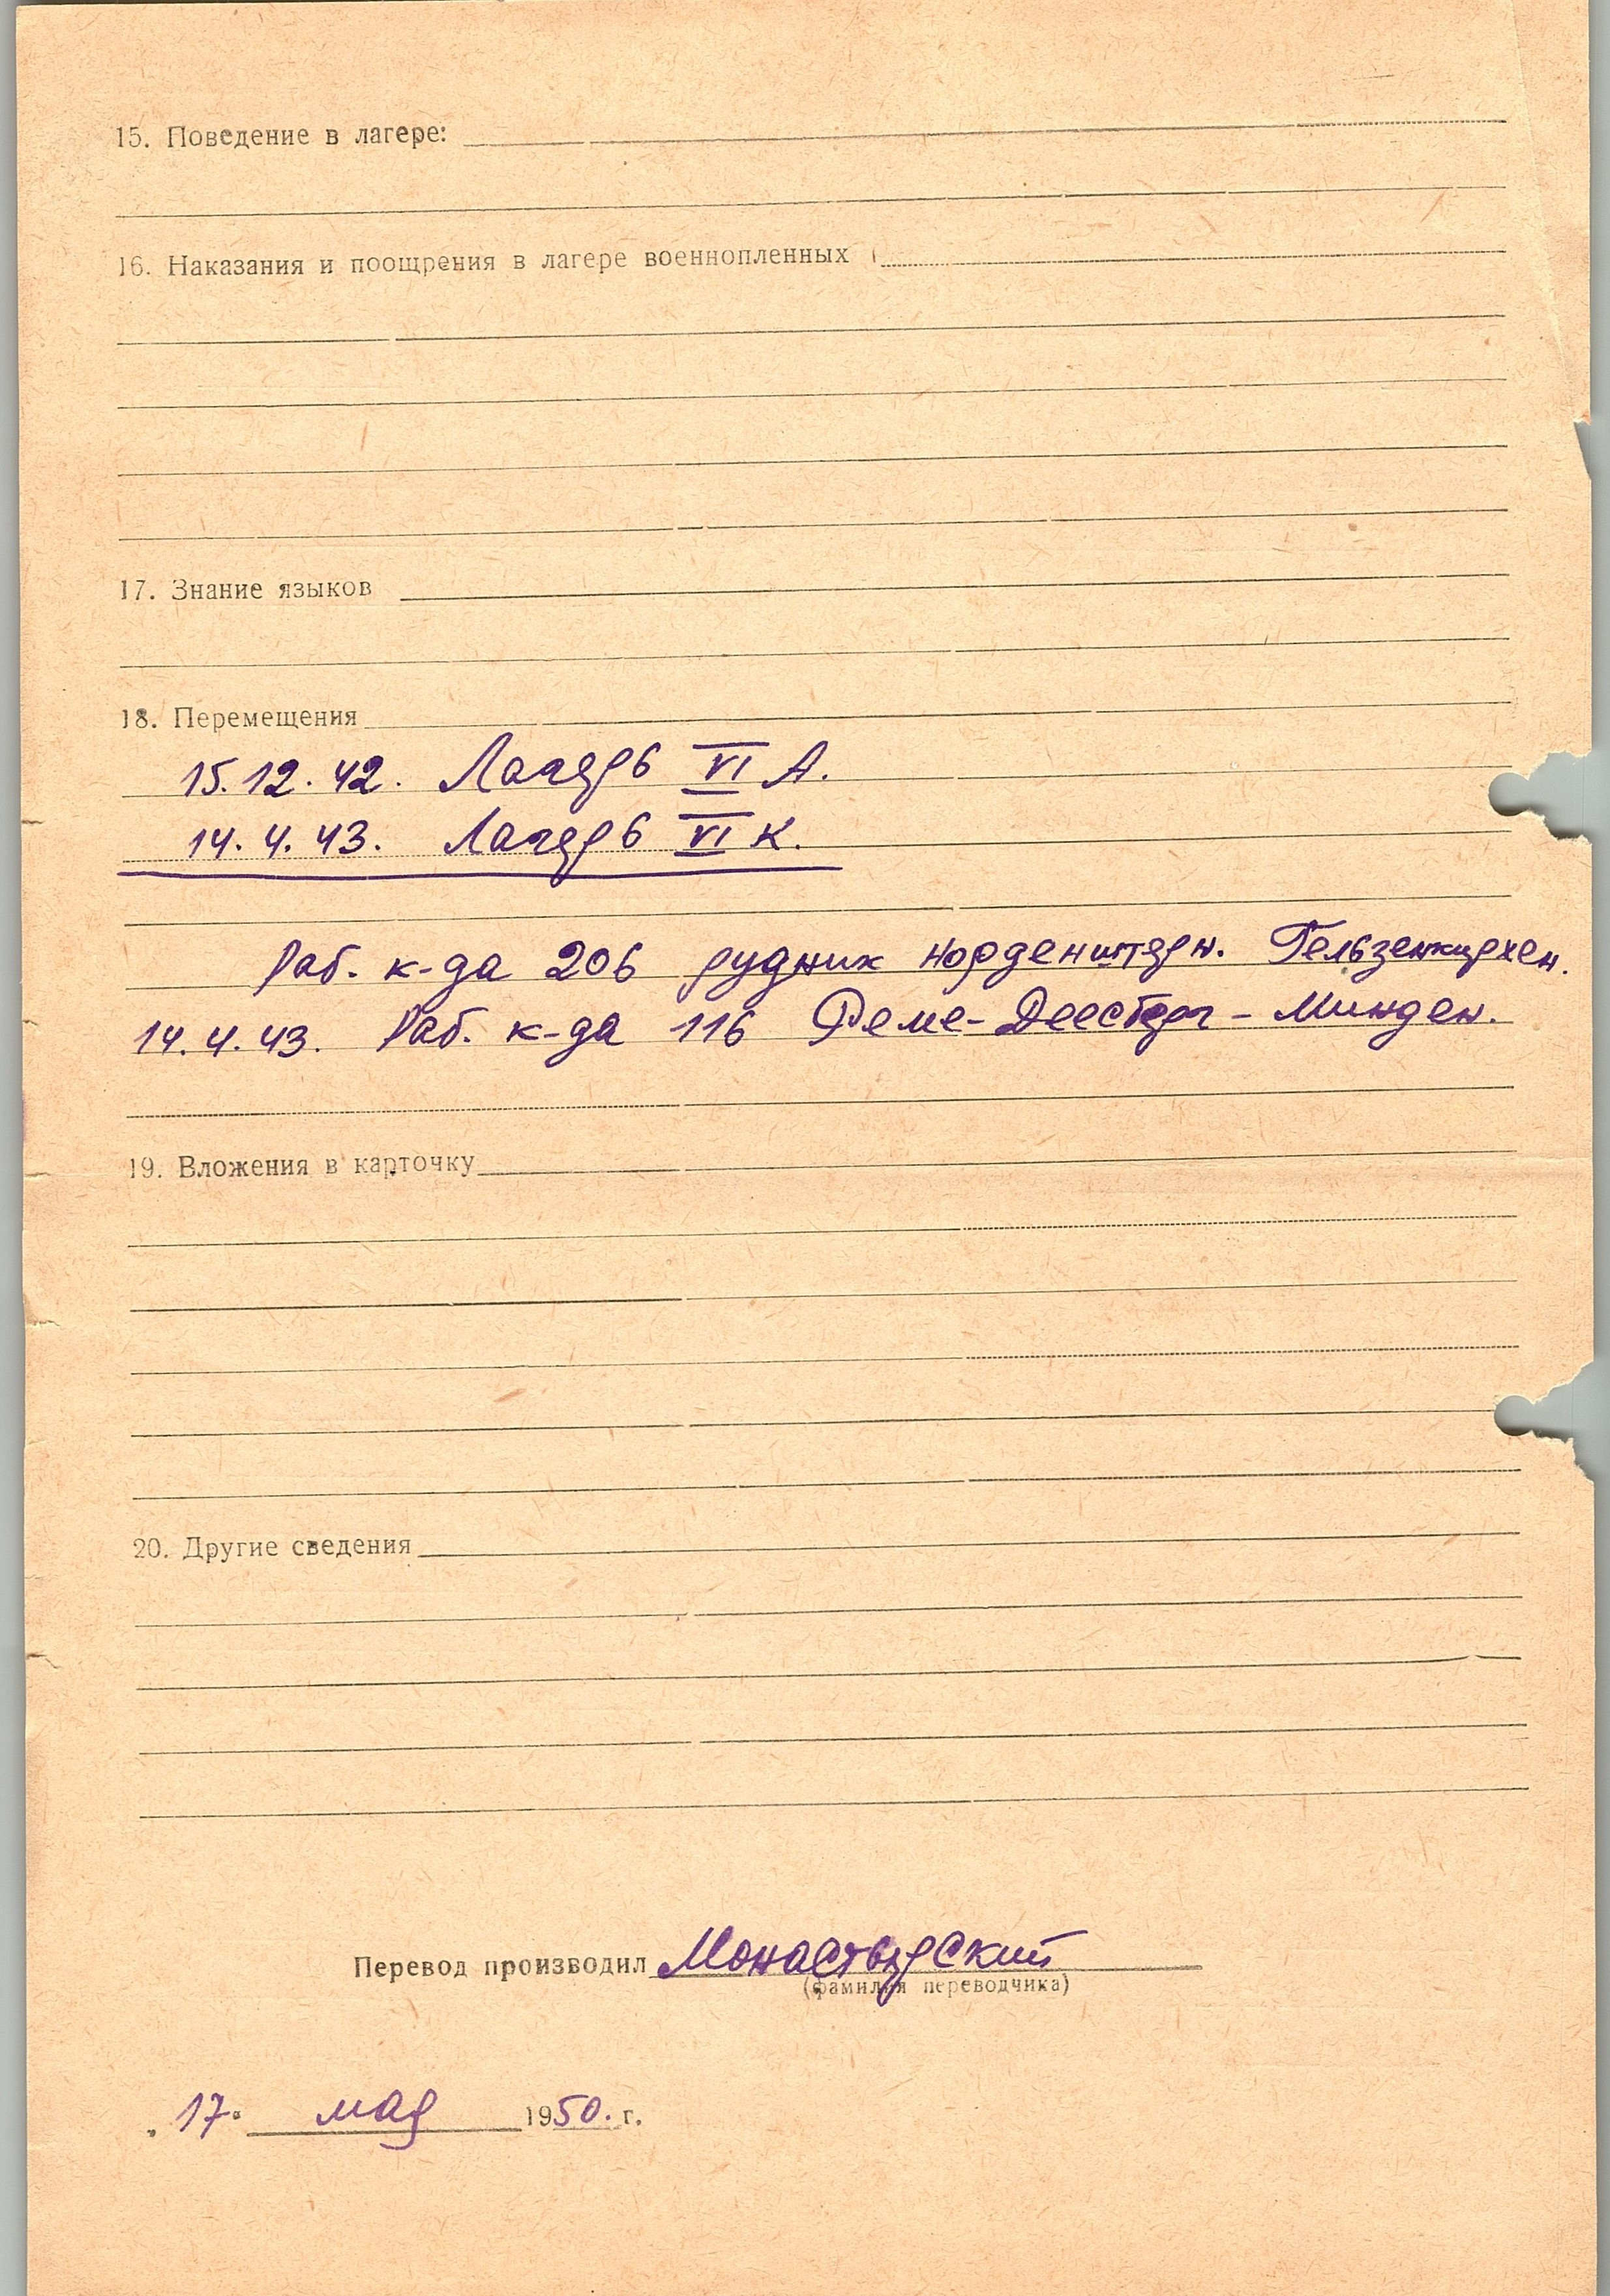 15. Поведение в лагере:
16. Наказания и поощрения в лагере военнопленных
17. Знание языков
18. Перемещения
15.12.42. Лагерь VI А.
14.4.43. Лагерь VI К.
Раб. к-да 206 рудник Норденштерн. Гельзенкирхен.
14.4.43. Раб. к-да 116 Реме-Деесберг - Минден.
19. Вложения в карточку
20. Другие сведения
Перевод производил Монастырский
(фамилия переводчика)
„17" мая 1950. г.